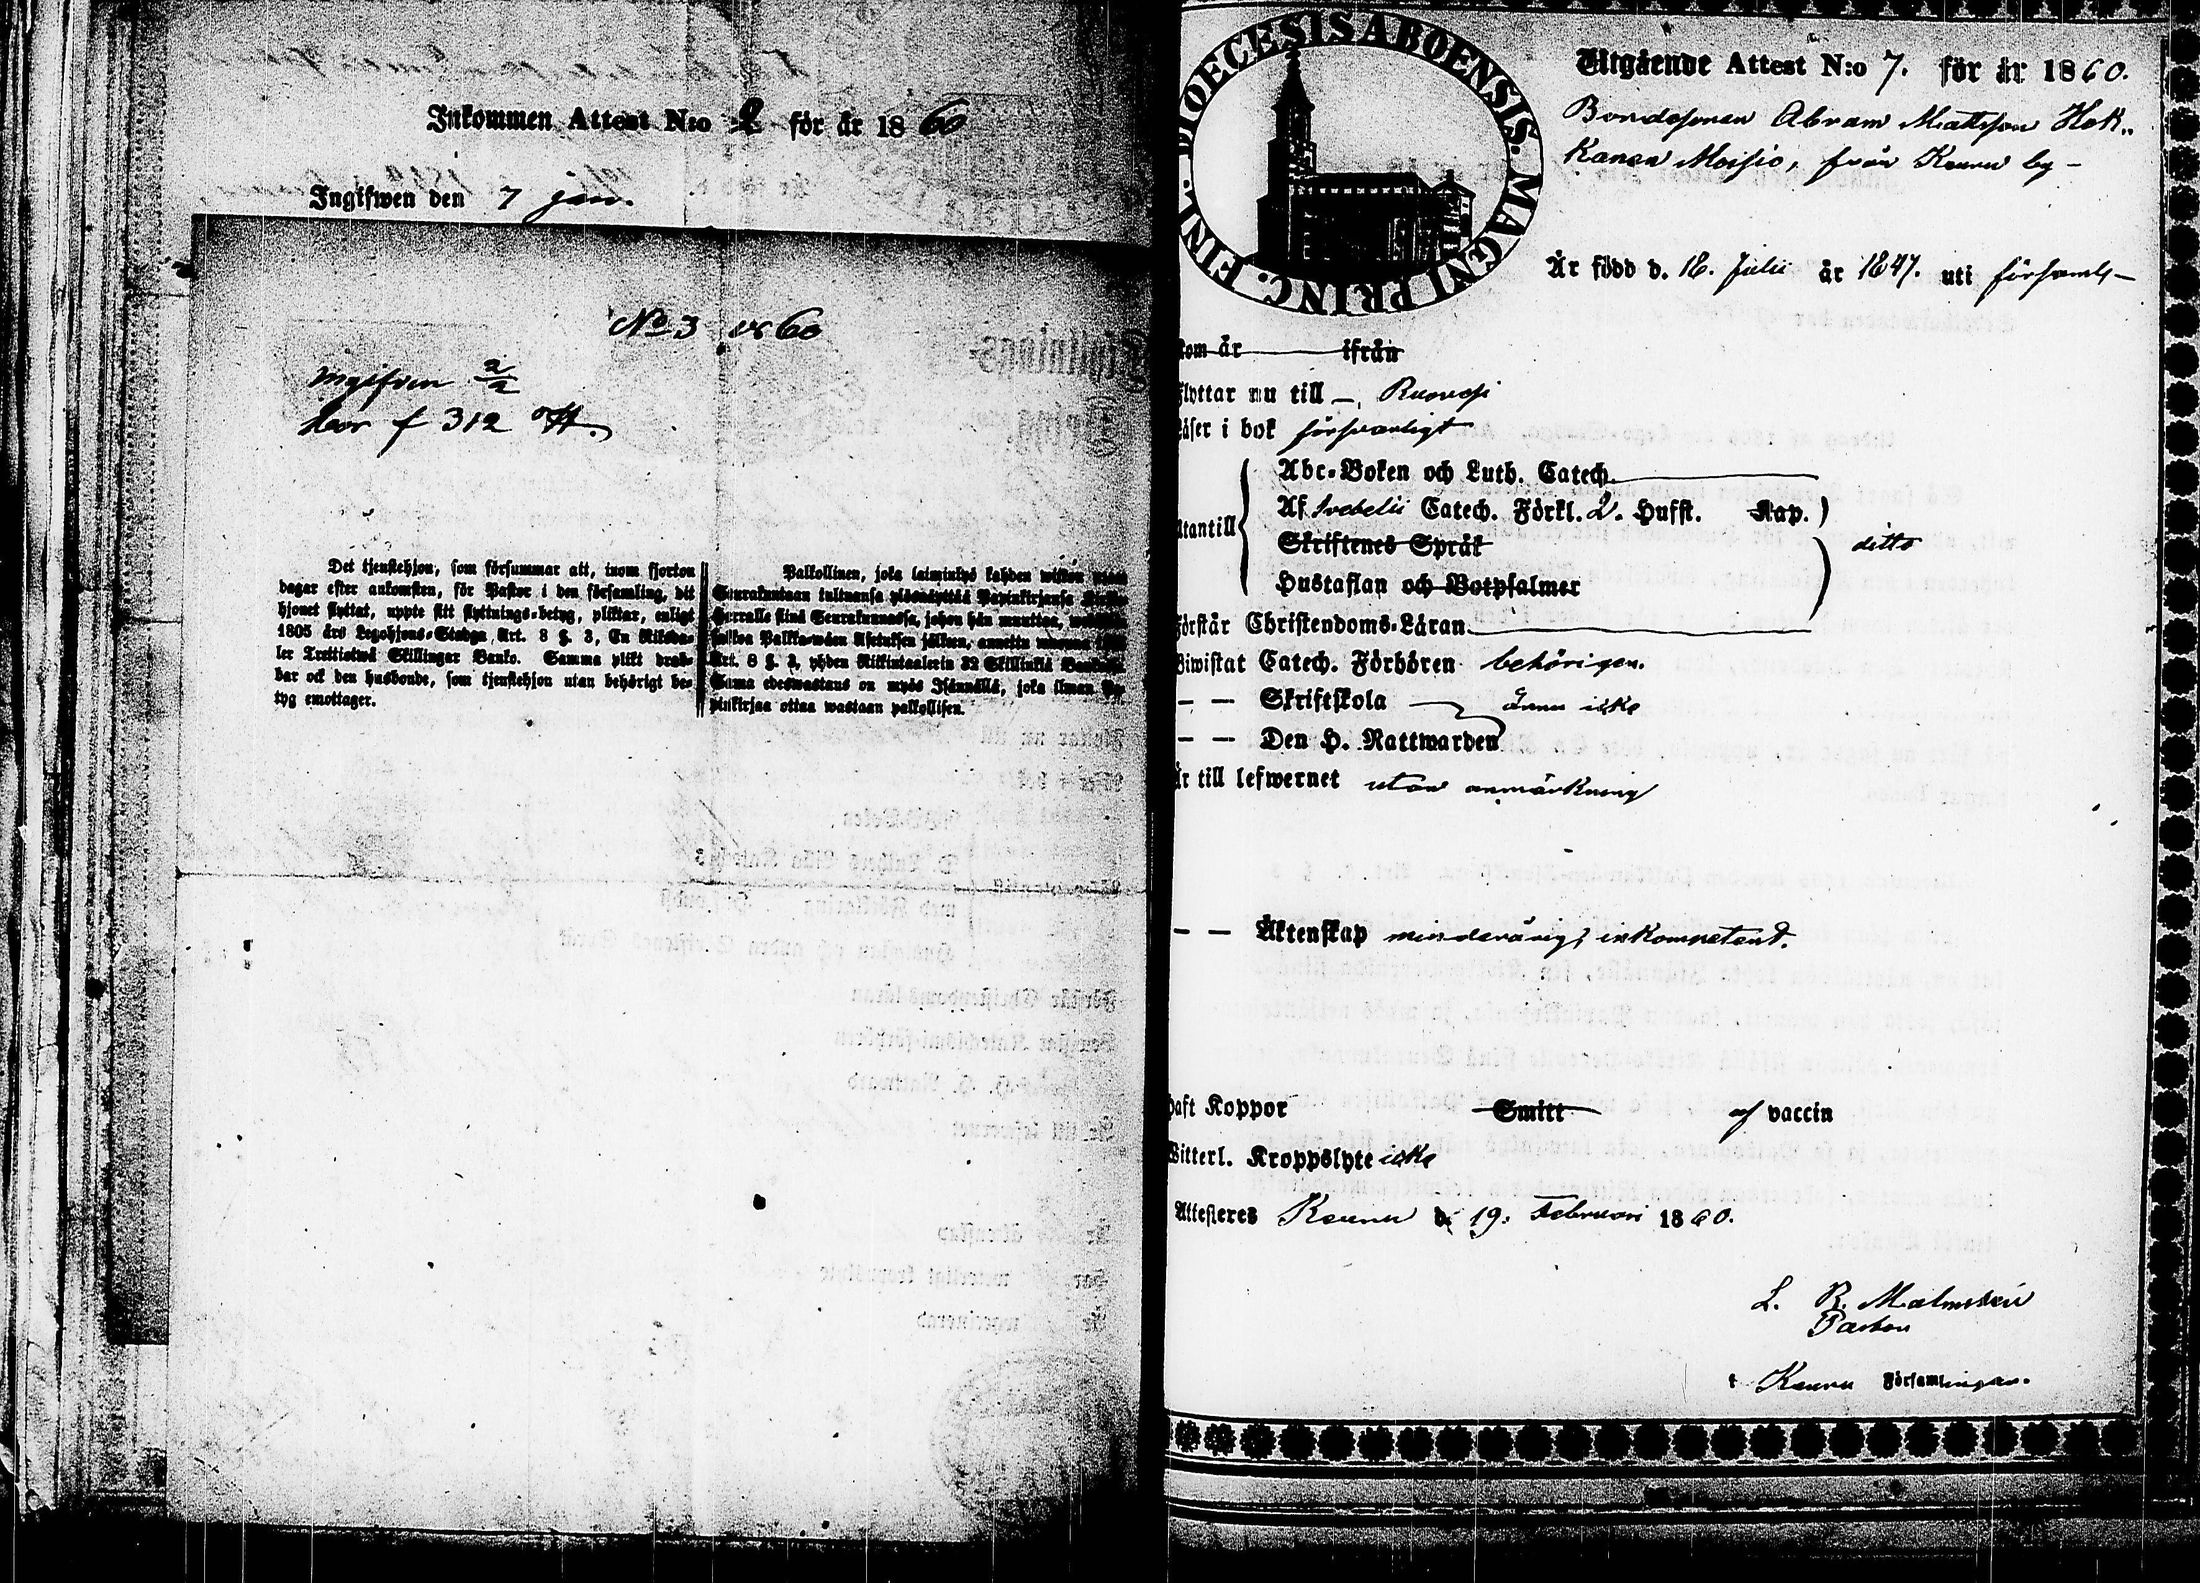 Inkommen Attest N:o 2 för år 1860
Ingifwen den 7 jan.
No 3 1860
Ingifven 2/2
bor f 312
Det tjenstehjon, som försummar att, inom fjorton
dagar efter ankomsten, för Pastor i den församling, dit
hjonet flyttat, uppte sitt flyttnings-betyg, pliktar, enligt
1805 års Legohjons-Stadga Art. 8 §. 3, En Riksda-
ler Trettiotwå Skillingar Banko. Samma plikt drab-
bar ock den husbonde, som tjenstehjon utan behörigt be-
tyg emottager.
Palkollinen, joka laiminlyö kahden wiikon
Seurakuntaan tultuansa ylösnäyttää Papinkirjansa
Herralle siinä Seurakunnassa, johon hän muuttaa,
Palkkawäen Asetuksen jälkeen, annettu wuonna
Art. 8 §. 3, yhden Riikintaalerin 32 Skillinkiä
Sama edeswastaus on myös Isännällä, joka ilman
pinkirjaa ottaa wastaan palkollisen.
DIOECESIS ABOENSIS. MAGNI PRINC. FINL.
Utgående Attest N:o 7. för år 1860.
Bondesonen Abram Mattsson Hok-
kanen Moisio, från Keuru by –
Är född d. 18. Julii år 1847. uti församl–
kom år ifrån
flyttar nu till – Ruovesi
Läser i bok försvarligt
Utantill
Abc-Boken och Luth. Catech.
Af Svebelii Catech. Förkl. 2. Hufst. Kap.
Skriftenes Språk
ditto
Hustaflan och Botpsalmer
Förstår Christendoms-Läran
Biwistat Catech. Förhören behörigen.
– – Skriftskola ännu icke
– – Den H. Nattwarden
Är till lefwernet utan anmärkning
– – Äktenskap minderårig, inkompetent.
Haft Koppor Smitt af vaccin
Witterl. Kroppslyte icke
Attesteres Keuru d. 19. Februari 1860.
L. R. Malmstén
Pastor
i Keuru Församlingar.